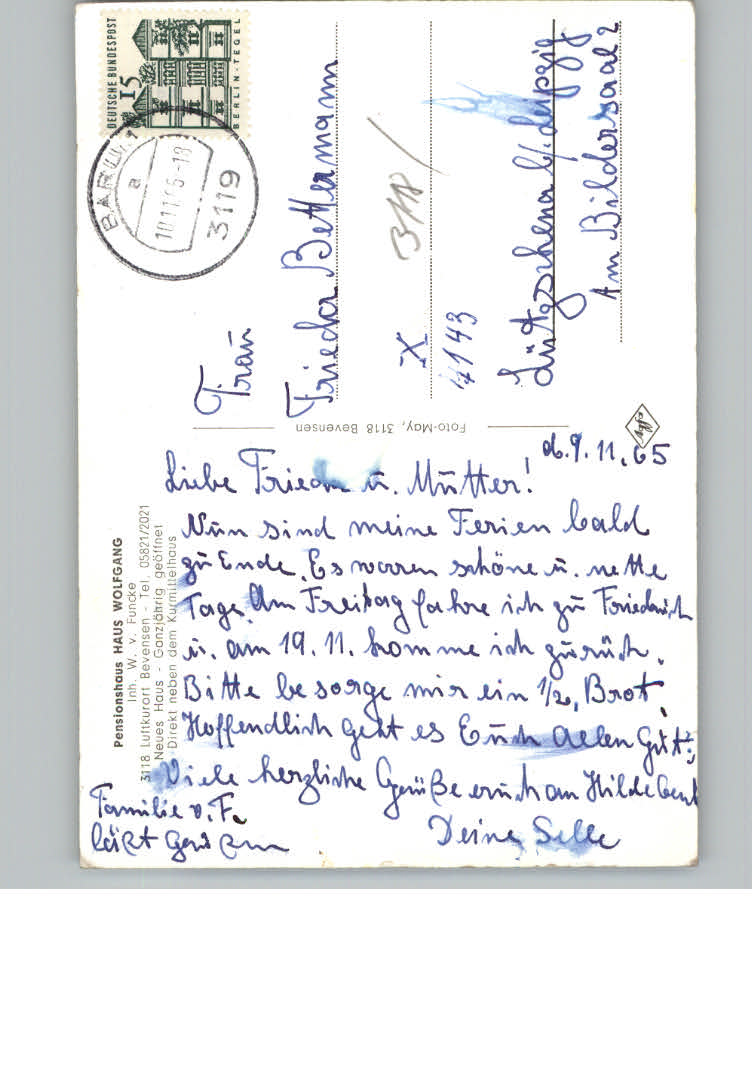 Pensionshaus HAUS WOLFGANG
Inh. W. v. Funcke
3118 Luftkurort Bevensen - Tel. 05821/2021
Neues Haus - Ganzjährig geöffnet
Direkt neben dem Kurmittelhaus
d. 9. 11. 65
Liebe Frieda u. Mutter!
Nun sind meine Ferien bald
zu Ende. Es waren schöne u. nette
Tage. Am Freitag fahre ich zu Friedrich
u. am 19. 11. komme ich zurück.
Bitte besorge mir ein 1/2 Brot.
Hoffendlich geht es Euch Allen Gut.
Viele herzliche Grüße auch an
Deine Selle
Familie v. F.
läßt grüßen
Foto-May, 3118 Bevensen
DEUTSCHE BUNDESPOST
15
BERLIN-TEGEL
BARUM
a
10.11.65-18
3119
Frau
Frieda Bettermann
3118 /
X
4143
Lützschena b/ Leipzig
Am Bildersaal 2